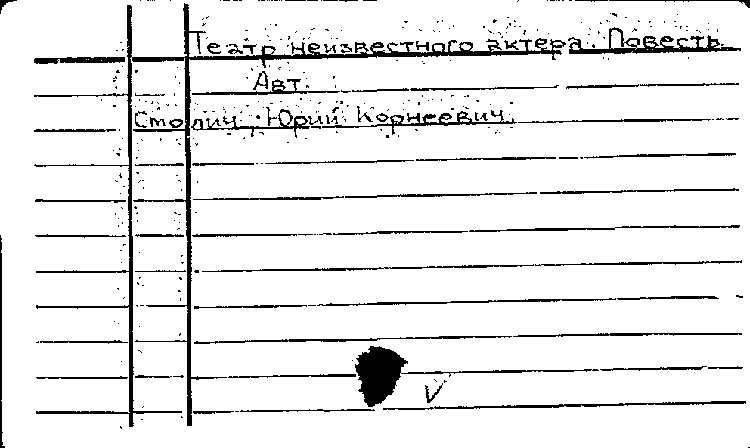 Театр неизвестного актера. Повесть.
Авт.
Столич, Юрий Корнеевич.